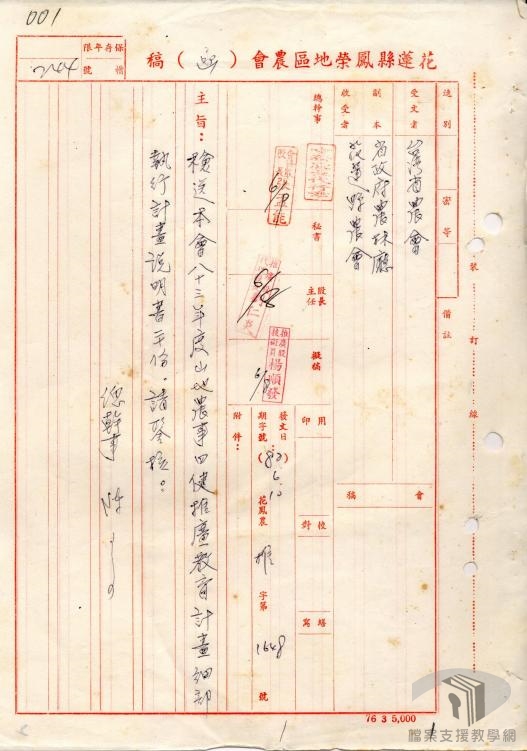 001
保存年限
檔號
花蓮縣鳳榮地區農會（函）稿
速別
密等
備註
裝訂線
受文者
台灣省農會
副本收受者
省政府農林廳
花蓮縣農會
會稿
總幹事
秘書
股長主任
擬稿
推廣股
技術員
楊順發
6/8
用印
校對
繕寫
發文日期字號
82.6.10
花鳳農 推 字第 1648 號
附件：
主旨：檢送本會八十三年度山地農事四健推廣教育計畫細部
執行計畫說明書一份。請鑒核。
總幹事
76 3 5,000
1
檔案支援教學網